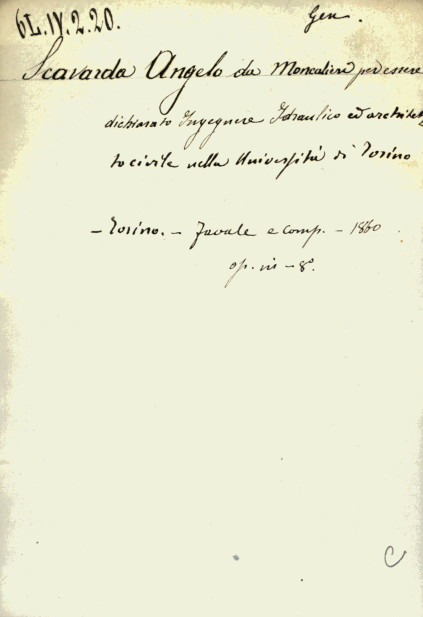 6L.IV.2.20.
Gen.
Scavarda Angelo da Moncalieri per essere
dichiarato Ingegnere Idraulico ed architet
to civile nella Università di Torino
- Torino. - Favale e comp. - 1860.
op. in - 8°.
C